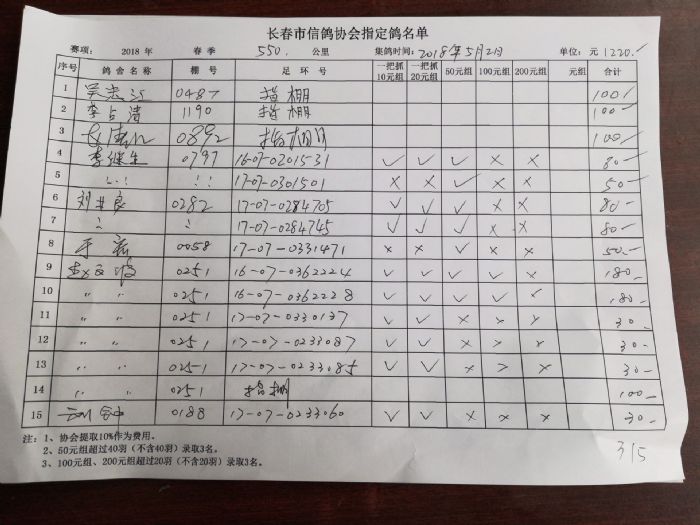 长春市信鸽协会指定鸽名单
赛项： 2018 年 春 季 550. 公里 集鸽时间：2018年5月2日 单位：元 1220.-
序号 鸽舍名称 棚号 足环号 一把抓10元组 一把抓20元组 50元组 100元组 200元组 元组 合计
1 0487 指棚 100.-
2 李占清 1190 指棚 100-
3 0892 指棚 100-
4 李继生 0797 16-07-0201531 ✓ ✓ ✓ × × 80-
5 〃 〃 17-07-0301501 × × ✓ × × 50-
6 0282 17-07-0284705 ✓ ✓ ✓ × × 80-
7 〃 〃 17-07-0284745 ✓ ✓ ✓ × × 80-
8 0058 17-07-0331471 × × ✓ × × 50.-
9 0251 16-07-0362224 ✓ ✓ ✓ ✓ × 180-
10 〃 〃 0251 16-07-0362228 ✓ ✓ ✓ ✓ × 180-
11 〃 〃 0251 17-07-0330137 ✓ ✓ × × × 30-
12 〃 〃 0251 17-07-0233087 ✓ ✓ × × × 30-
13 〃 〃 0251 17-07-0233085 ✓ ✓ × × × 30-
14 〃 〃 0251 指棚 100-
15 0188 17-07-0233060 ✓ ✓ × × × 30-
注：1、协会提取10%作为费用。
2、50元组超过40羽（不含40羽）录取3名。
3、100元组、200元组超过20羽（不含20羽）录取3名。
315